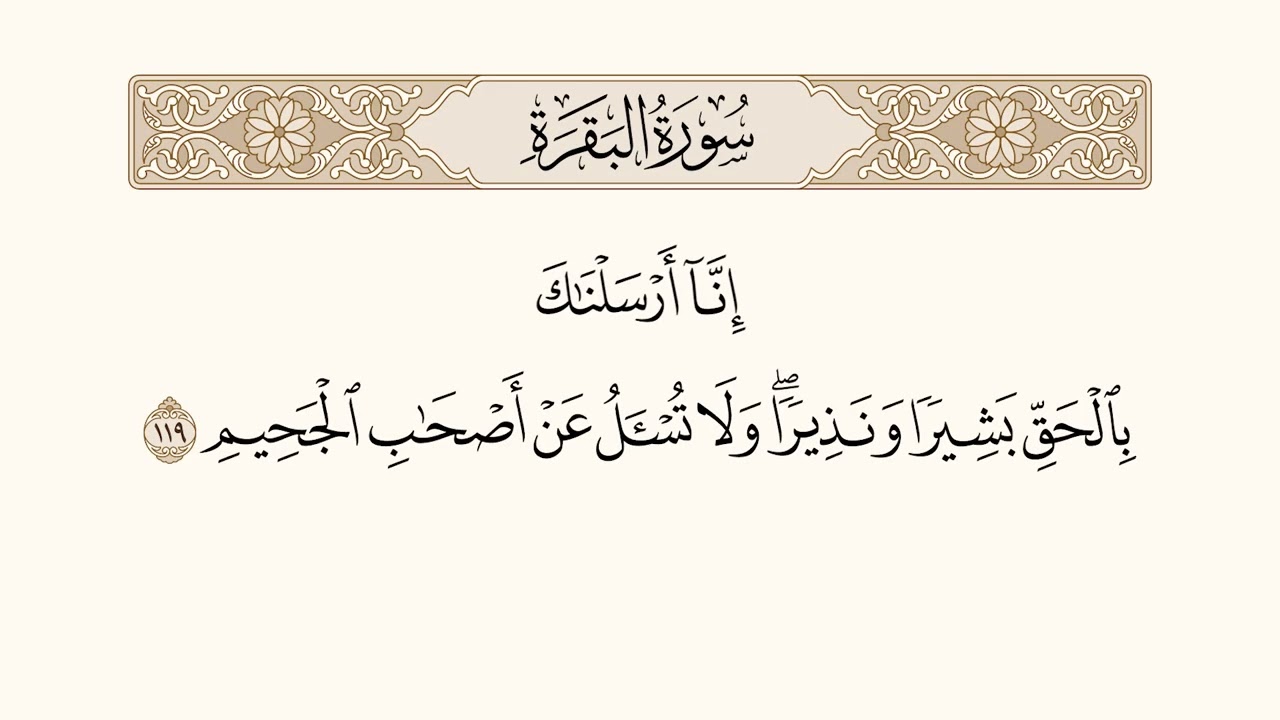 سُورَةُ البَقَرَةِ
إِنَّآ أَرۡسَلۡنَٰكَ
بِٱلۡحَقِّ بَشِيرٗا وَنَذِيرٗاۖ وَلَا تُسۡـَٔلُ عَنۡ أَصۡحَٰبِ ٱلۡجَحِيمِ ١١٩